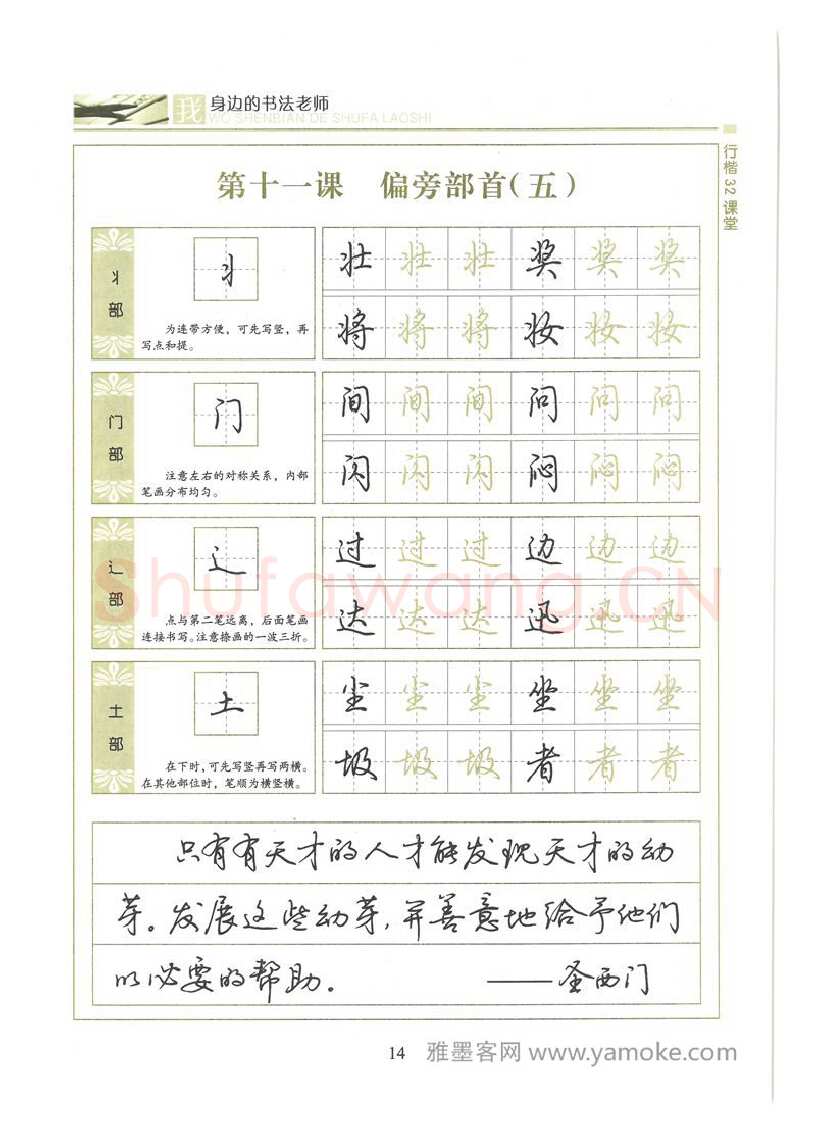 我 身边的书法老师
WO SHENBIAN DE SHUFA LAOSHI
行楷32课堂
第十一课 偏旁部首(五)
丬部
丬
为连带方便，可先写竖，再
写点和提。
壮 壮 壮 奖 奖 奖
将 将 将 妆 妆 妆
门部
门
注意左右的对称关系，内部
笔画分布均匀。
间 间 间 问 问 问
闪 闪 闪 闷 闷 闷
辶部
辶
点与第二笔远离，后面笔画
连接书写。注意捺画的一波三折。
过 过 过 边 边 边
达 达 达 迅 迅 迅
Shufawang.CN
土部
土
在下时，可先写竖再写两横。
在其他部位时，笔顺为横竖横。
尘 尘 尘 坐 坐 坐
圾 圾 圾 者 者 者
只有有天才的人才能发现天才的幼
芽。发展这些幼芽，并善意地给予他们
以必要的帮助。 ——圣西门
14 雅墨客网 www.yamoke.com